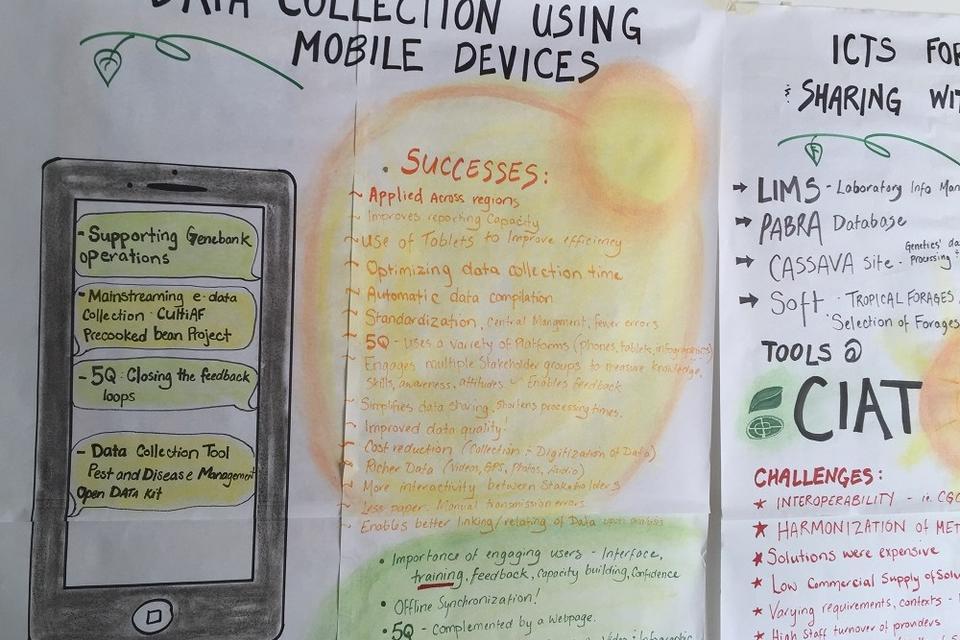 DATA COLLECTION USING
MOBILE DEVICES
- Supporting Genebank
operations
- Mainstreaming e-data
Collection · CultiAF
Precooked bean Project
- 5Q : Closing the feedback
loops
- Data Collection Tool
Pest and Disease Management
Open DATA Kit
• SUCCESSES:
~ Applied Across regions
~ Improves reporting Capacity
~ Use of Tablets to Improve efficiency
~ Optimizing data collection time
~ Automatic data compilation
~ Standardization, Central Managment, fewer errors
~ 5Q - Uses a variety of Platforms (phones, tablets, infographics)
~ Engages multiple Stakeholder groups to measure knowledge,
Skills, awareness, attitudes Enables feedback
~ Simplifies data sharing, shortens processing times.
~ Improved data quality!
~ Cost reduction (Collection : Digitization of Data)
~ Richer Data (Videos, GPS, Photos, Audio)
~ More interactivity between Stakeholders
~ Less paper. Manual transmission errors
~ Enables better linking/relating of Data upon analysis
• Importance of engaging users - Interface,
training, feedback, Capacity building, Confidence
• Offline Synchronization!
• 5Q - Complemented by a Webpage.
Video : Infographic
ICTS FOR
& SHARING WIT
→ LIMS - Laboratory Info Man
→ PABRA Database
→ CASSAVA Site - Genetics' da
Processing +
→ Soft · TROPICAL FORAGES
Selection of Forages
TOOLS @
CIAT
CHALLENGES:
★ INTEROPERABILITY - ie. CGC
★ HARMONIZATION of MET
★ Solutions were expensive
★ Low Commercial Supply of Solu
★ Varying requirements, contexts -
★ High Staff turnover of providers